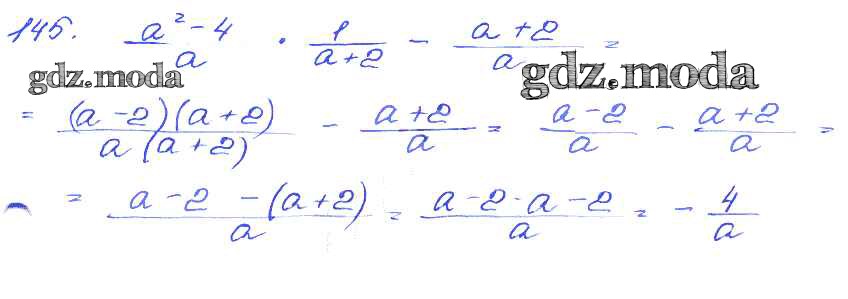 145. (a² - 4)/a · 1/(a+2) - (a+2)/a =
gdz.moda gdz.moda
= (a-2)(a+2)/a(a+2) - (a+2)/a = (a-2)/a - (a+2)/a =
= (a-2-(a+2))/a = (a-2-a-2)/a = -4/a